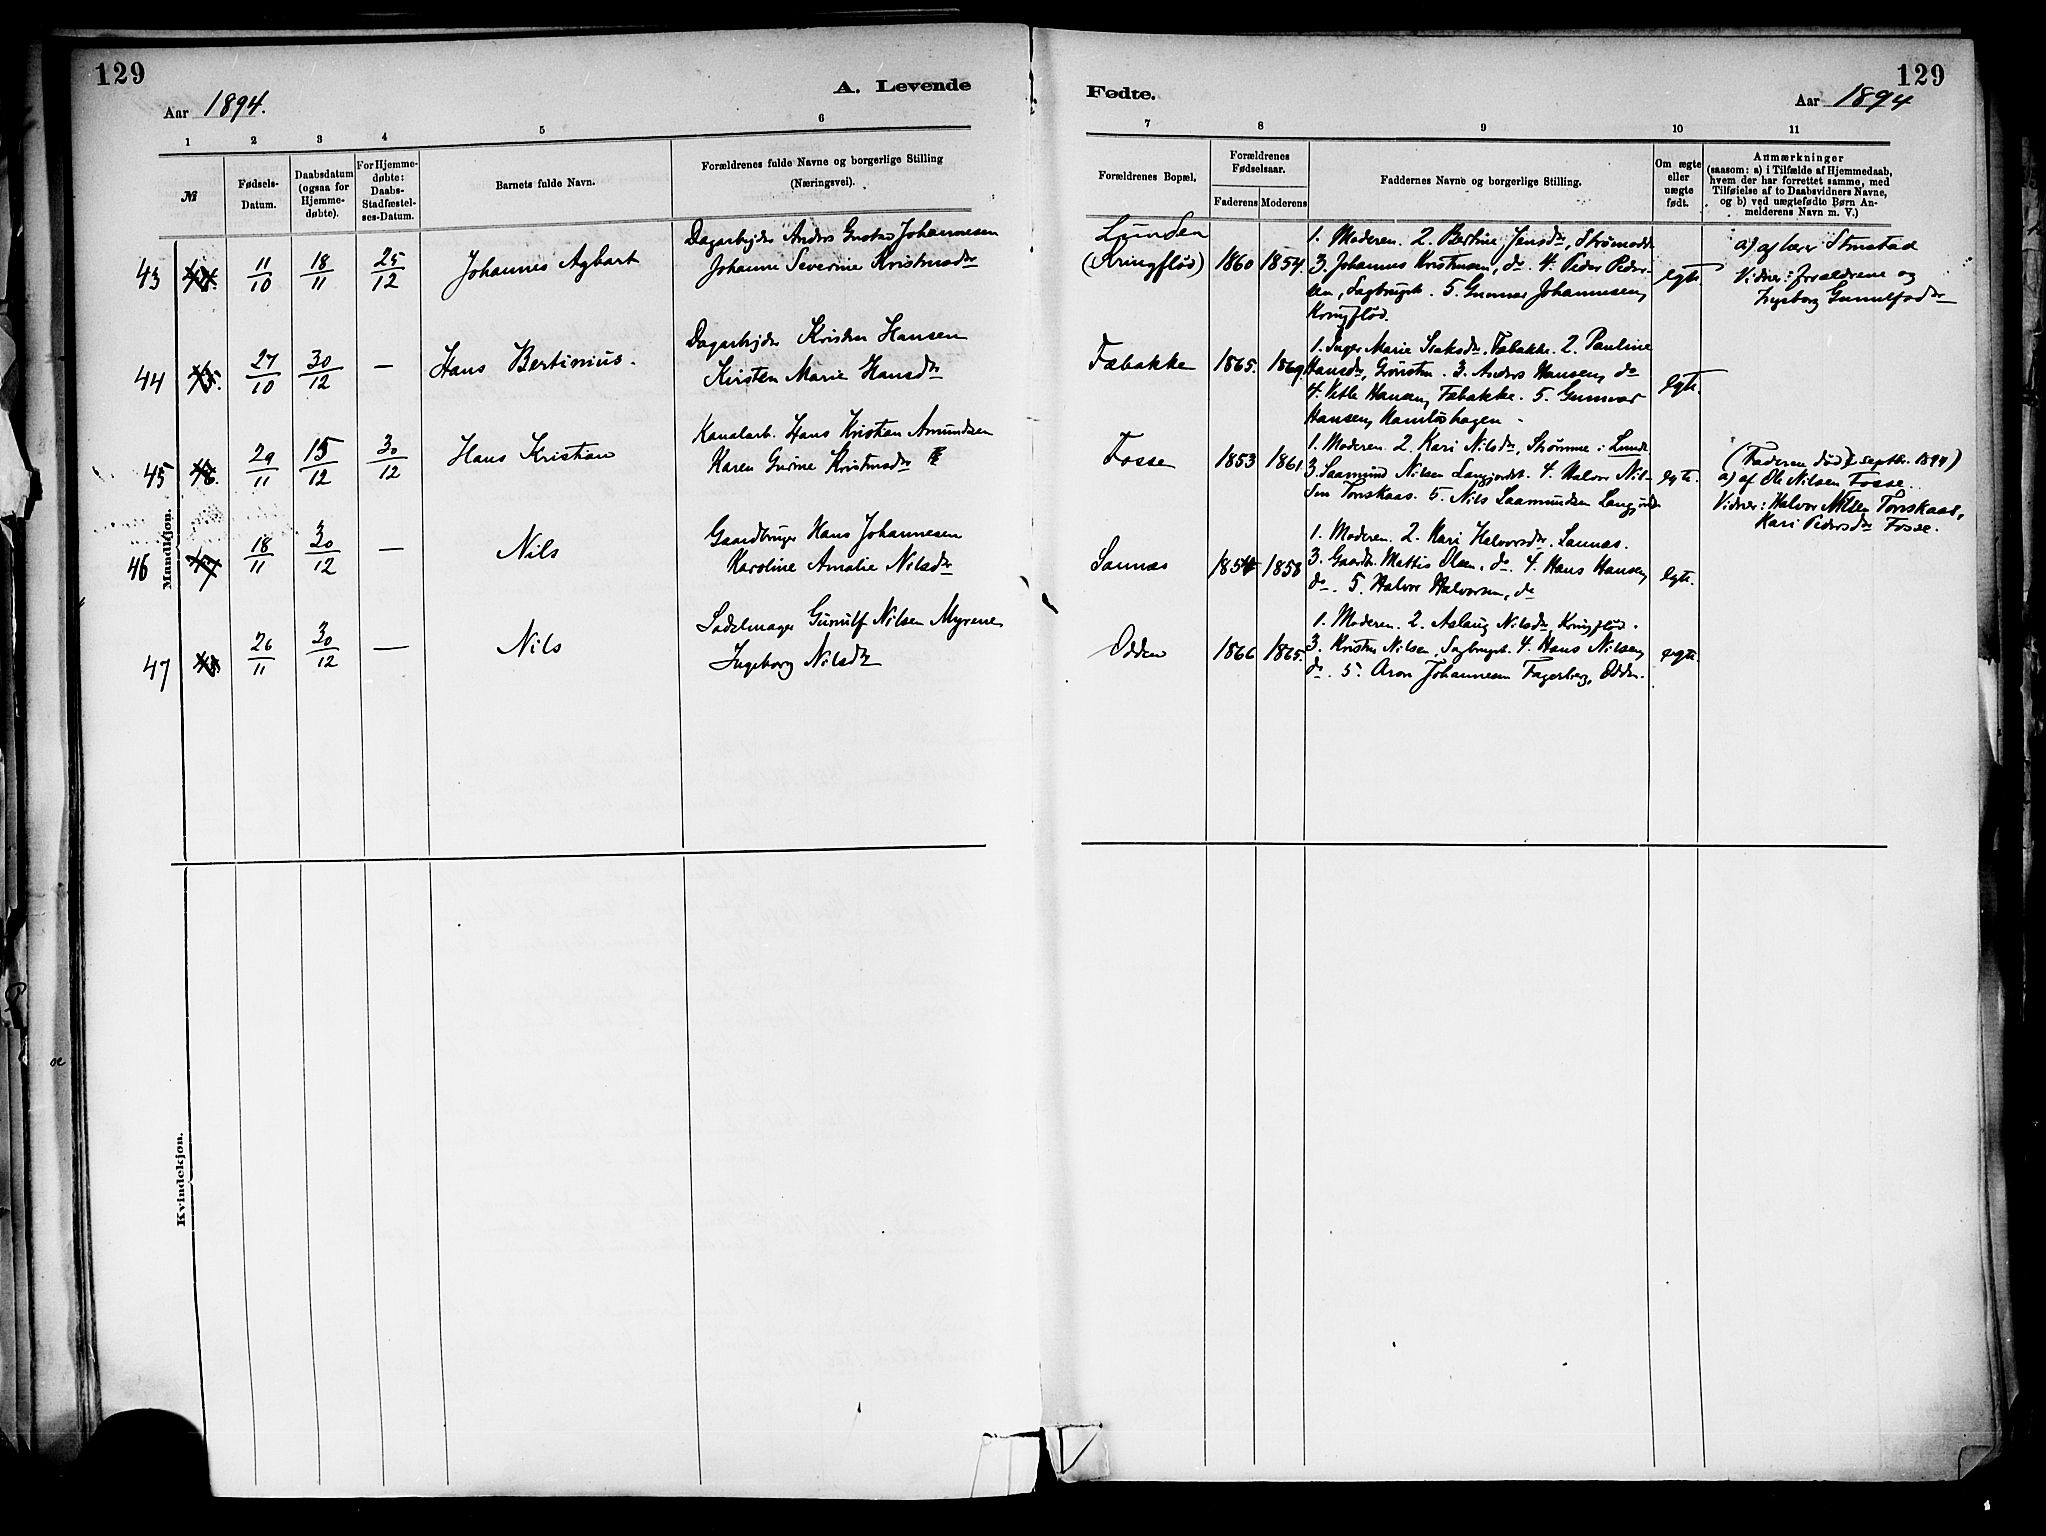 129
Aar 1894.
A. Levende
1 2 3 4 5 6
№
Fødsels-
Datum.
Daabsdatum
(ogsaa for
Hjemme-
døbte).
For Hjemme-
døbte:
Daabs-
Stadfæstel-
ses-Datum.
Barnets fulde Navn.
Forældrenes fulde Navne og borgerlige Stilling
(Næringsvei).
Mandkjøn.
43 11/10 18/11 25/12 Johannes Agbart
Dagarbejder Anders Gustav Johannesen
Johanne Severine Kristensdr
44 45. 27/10 30/12 — Hans Bertinius.
Dagarbejder Kristen Hansen
Kirsten Marie Hansdr
45 46. 29/11 15/12 30/12 Hans Kristian
Kanalarb. Hans Kristian Amundsen
Karen Gurine Kristensdr
46 47 18/11 30/12 — Nils
Gaardbruger Hans Johannesen
Karoline Amalie Nilsdr
47 48. 26/11 30/12 — Nils
Sadelmager Gunulf Nilsen Myrene
Ingeborg Nilsdr
Kvindekjøn.
129
Fødte.
Aar 1894
7 8 9 10 11
Forældrenes Bopæl,
Forældrenes
Fødselsaar.
Faderens Moderens
Faddernes Navne og borgerlige Stilling.
Om ægte
eller
uægte
født.
Anmærkninger
(saasom: a) i Tilfælde af Hjemmedaab,
hvem der har forrettet samme, med
Tilføielse af to Daabsvidners Navne,
og b) ved uægtefødte Børn An-
melderens Navn m. V.)
Lunden
(Kringflød) 1860 1854.
1. Moderen. 2. Bertine Jensdr, Strømodd
3. Johannes Kristensen, do. 4. Peder Peder-
sen, Sagbrugsb. 5. Gunnar Johannesen,
Kringflød.
egte.
a) af lærer Stenstad
Vidner: forældrene og
Ingeborg Gunulfsdr
Fæbakke 1865. 1869.
1. Inger Marie Isaksdr, Fæbakke. 2. Pauline
Hansdr, Grønsten. 3. Anders Hansen, do
4. Vetle Hansen, Fæbakke. 5. Gunnar
Hansen, Kamløshagen -
egte.
Fosse 1853 1861
1. Moderen. 2. Kari Nilsdr, Strømme i Lunde
3. Saamund Nilsen Langjordet. 4. Halvor Nil-
sen Tonskaas. 5. Nils Saamundsen Langjordet
egte.
(Faderen død septbr. 1894)
a) af Ole Nilsen Fosse.
Vidner: Halvor Nilsen Tonskaas,
Kari Pedersdr Fosse.
Sannas 1854 1858
1. Moderen. 2. Kari Halvorsdr. Sannas.
3. Gaardbr. Mattis Olsen, do. 4. Hans Hansen,
do. 5. Halvor Halvorsen, do
egte.
Odden 1866 1865.
1. Moderen. 2. Aslaug Nilsdr, Kringflød.
3. Kristen Nilsen, Sagbrugsb. 4. Hans Nilsen,
do. 5. Aron Johannesen Fagerberg, Odden.
egte.